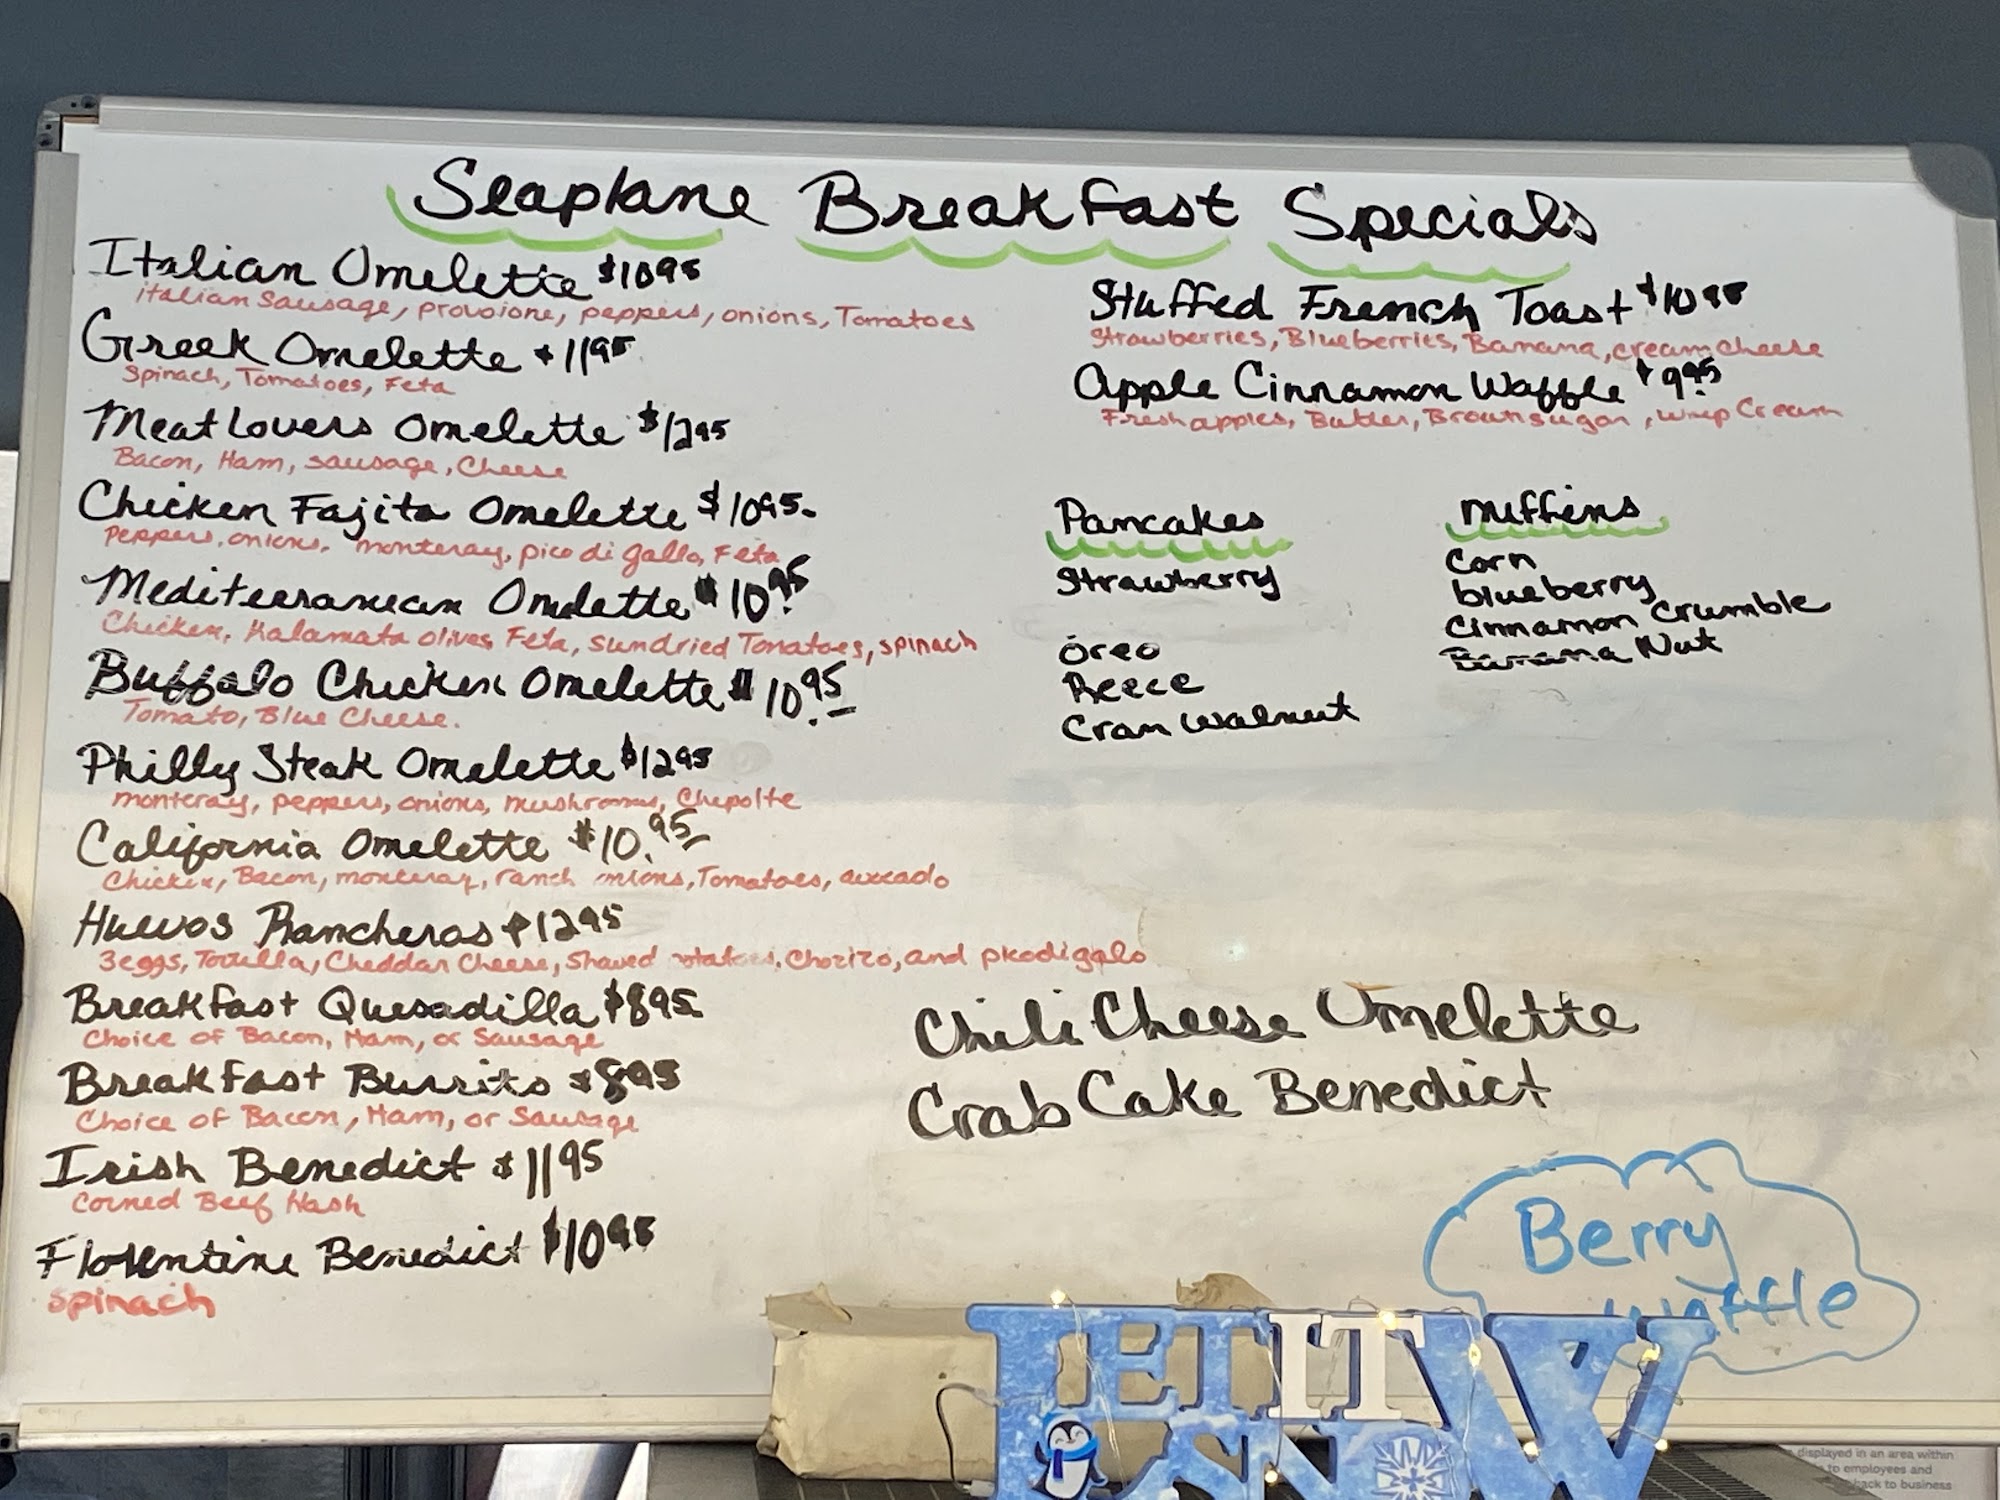 Seaplane Breakfast Specials
Italian Omelette $10 95
italian Sausage, provoione, peppers, onions, Tomatoes
Greek Omelette $11 95
Spinach, Tomatoes, Feta
Meat Lovers Omelette $12 95
Bacon, Ham, sausage, Cheese
Chicken Fajita Omelette $10 95
Peppers, onions, monteray, pico di gallo, Feta
Mediterranean Omelette $10.95
Chicken, Kalamata olives, Feta, sundried Tomatoes, spinach
Buffalo Chicken Omelette $10.95
Tomato, Blue Cheese.
Philly Steak Omelette $12 95
monteray, peppers, onions, mushrooms, Chepolte
California Omelette $10.95
Chicken, Bacon, monteray, ranch onions, Tomatoes, avocado
Huevos Rancheros $12 95
3 eggs, Tortilla, Cheddar Cheese, Shaved potatoes, Chorizo, and picodigalo
Breakfast Quesadilla $8 95
Choice of Bacon, Ham, or Sausage
Breakfast Burrito $8 95
Choice of Bacon, Ham, or Sausage
Irish Benedict $11 95
Corned Beef Hash
Florentine Benedict $10 95
Spinach
Stuffed French Toast $10 95
Strawberries, Blueberries, Banana, cream cheese
Apple Cinnamon Waffle $9.95
Fresh apples, Butter, Brown sugar, whip Cream
Pancakes
Strawberry
Oreo
Reece
Cran Walnut
muffins
Corn
blueberry
Cinnamon Crumble
Banana Nut
Chili Cheese Omelette
Crab Cake Benedict
Berry
Waffle
LET IT
SNOW
displayed in an area within
to employees and
back to business